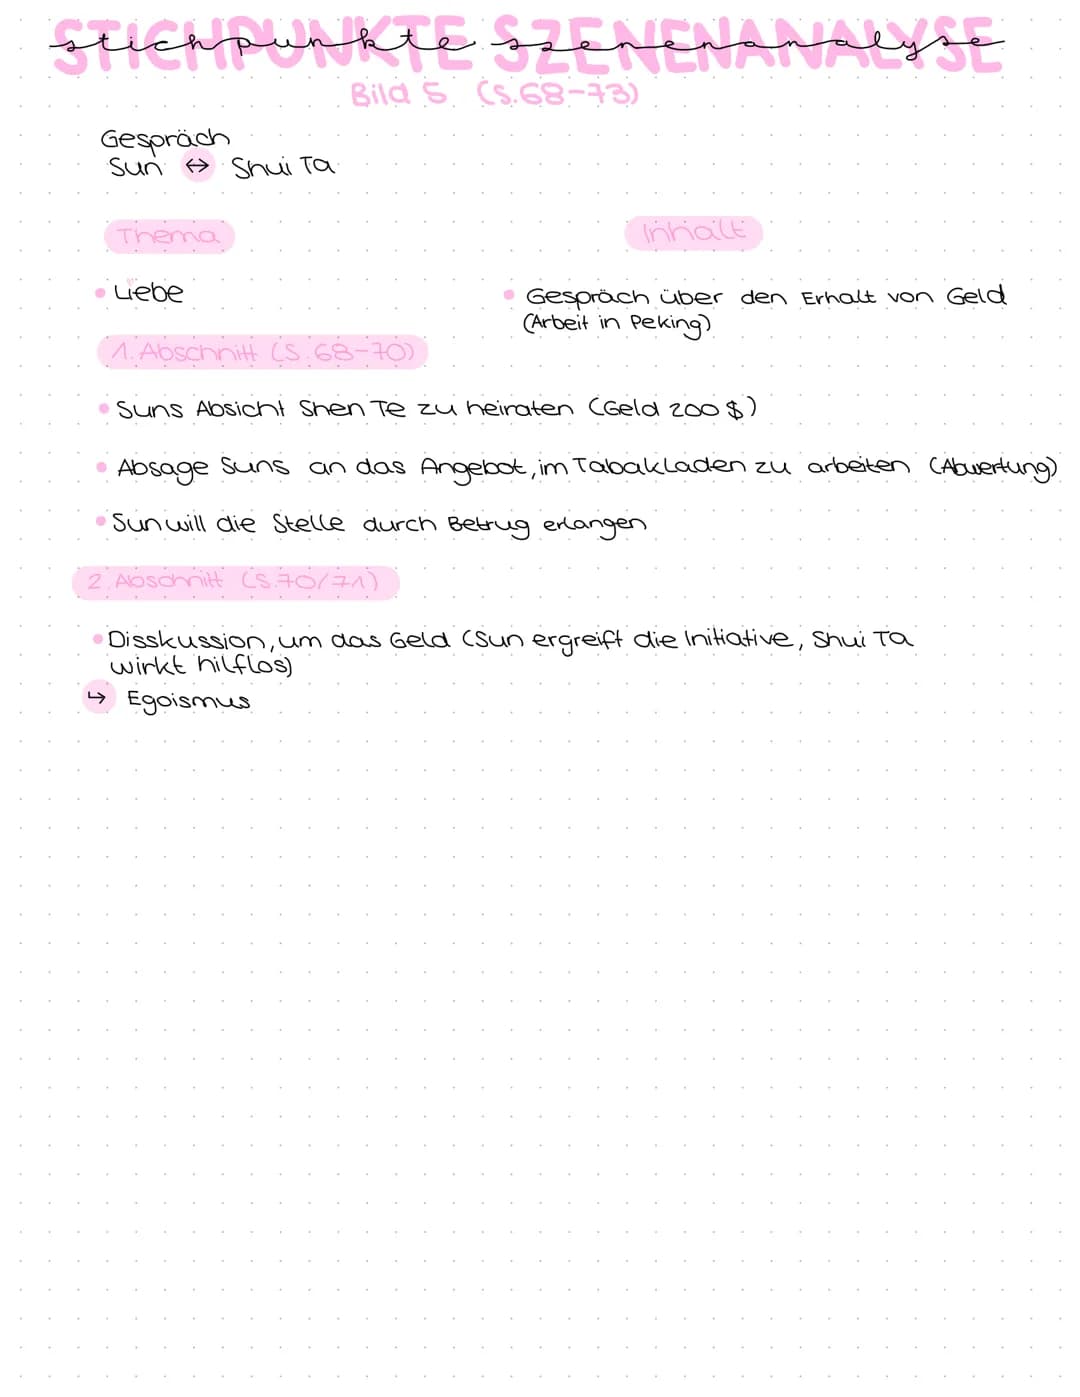 STICHPUNKTE SZENENANALYSE
stichpunkte szenenanalyse
Bild 5 (S.68-73)
Gespräch
Sun ↔ Shui Ta
Thema
Inhalt
• Liebe
• Gespräch über den Erhalt von Geld
(Arbeit in Peking)
1. Abschnitt (S.68-70)
• Suns Absicht Shen Te zu heiraten (Geld 200 $)
• Absage Suns an das Angebot, im Tabakladen zu arbeiten (Abwertung)
• Sun will die Stelle durch Betrug erlangen
2. Abschnitt (S.70/71)
• Disskussion, um das Geld (Sun ergreift die Initiative, Shui Ta
wirkt hilflos)
↳ Egoismus